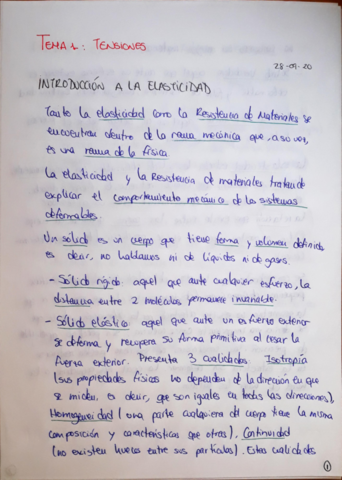 TEMA 1: TENSIONES.
28-09-20
INTRODUCCIÓN A LA ELASTICIDAD
Tanto la elasticidad como la Resistencia de Materiales se
encuentran dentro de la rama mecánica que, a su vez,
es una rama de la física.
La elasticidad y la Resistencia de materiales tratan de
explicar el comportamiento mecánico de los sistemas
deformables.
Un sólido es un cuerpo que tiene forma y volumen definidos
es decir, no hablamos ni de líquidos ni de gases.
- Sólido rígido: aquel que ante cualquier esfuerzo, la
distancia entre 2 moléculas permanece invariable.
- Sólido elástico: aquel que ante un esfuerzo exterior
se deforma y recupera su forma primitiva al cesar la
fuerza exterior. Presenta 3 cualidades: Isotropía
(sus propiedades físicas no dependen de la dirección en que
se miden, es decir, que son iguales en todas las direcciones),
Homogeneidad (una parte cualquiera del cuerpo tiene la misma
composición y características que otras), Continuidad
(no existen huecos entre sus partículas). Estas cualidades
1